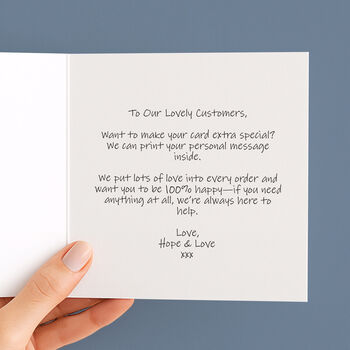 To Our Lovely Customers,
Want to make your card extra special?
We can print your personal message
inside.
We put lots of love into every order and
want you to be 100% happy—if you need
anything at all, we're always here to
help.
Love,
Hope & Love
xxx